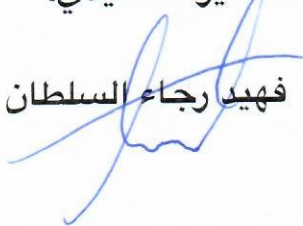 فهيد رجاء السلطان